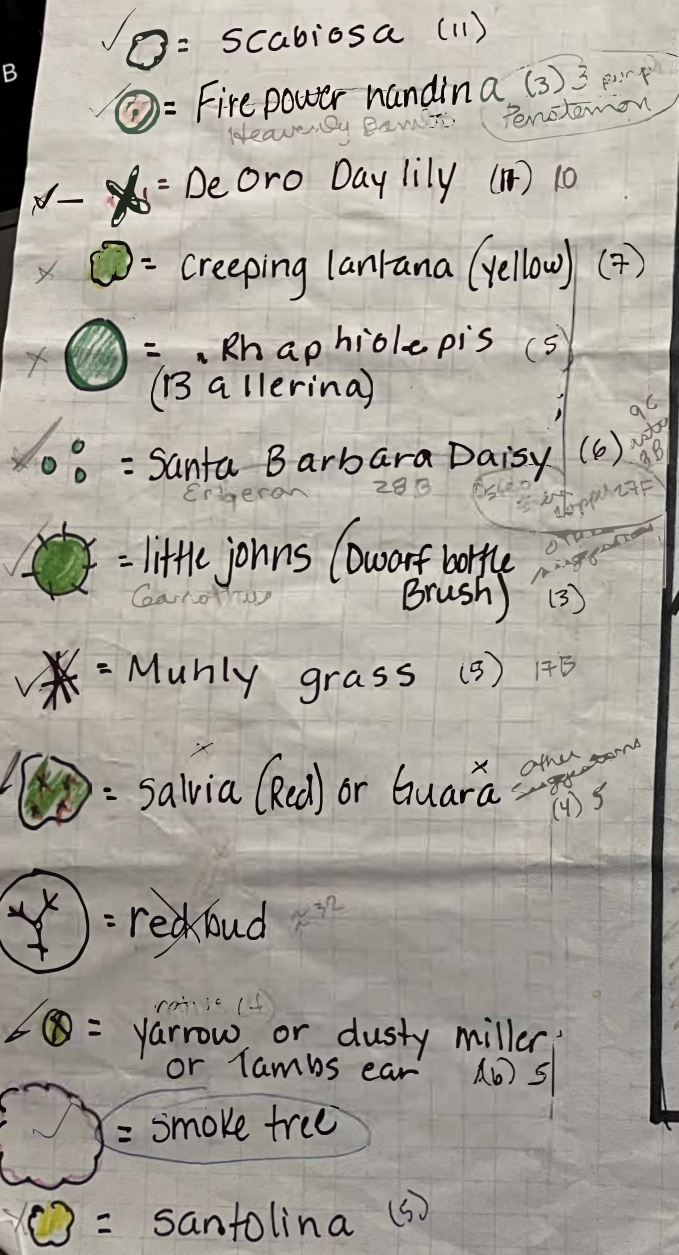 B
= scabiosa (11)
= Fire power nandina (3) 3
Penstemon
Heavenly
= De Oro Day lily 10
= creeping lantana (yellow) (7)
= Rhaphiolepis (5)
(Ballerina)
= Santa Barbara Daisy (6)
28B
= little johns (Dwarf bottle
Brush) (3)
= Muhly grass (5) 17B
= Salvia (Red) or Guara
other
suggestions
(4) 5
= redbud
= yarrow or dusty miller
or lambs ear (6) 5
= smoke tree
= santolina (5)